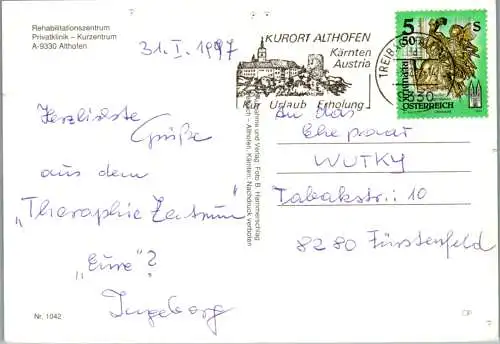 Rehabilitationszentrum
Privatklinik – Kurzentrum
A-9330 Althofen
31. I. 1997
KURORT ALTHOFEN
Kärnten
Austria
Kur Urlaub Erholung
TREIB
9330
5 50 S
REPUBLIK
ÖSTERREICH
Herzlichste
Grüße
aus dem
"Theraphie Zentrum"
"Eure"?
Ingeborg
An das
Ehepaar
WUTKY
Tabakstr: 10
8280 Fürstenfeld
Aufnahme und Verlag Foto B. Hammerschlag
Althofen, Kärnten; Nachdruck verboten
Nr. 1042